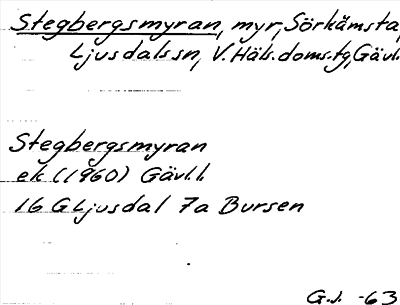 Stegbergsmyran, myr, Sörkämsta,
Ljusdals sn, V. Häls. doms.tg, Gävl.
Stegbergsmyran
ek (1960) Gävl.l.
16 G Ljusdal 7a Bursen
G.J. -63